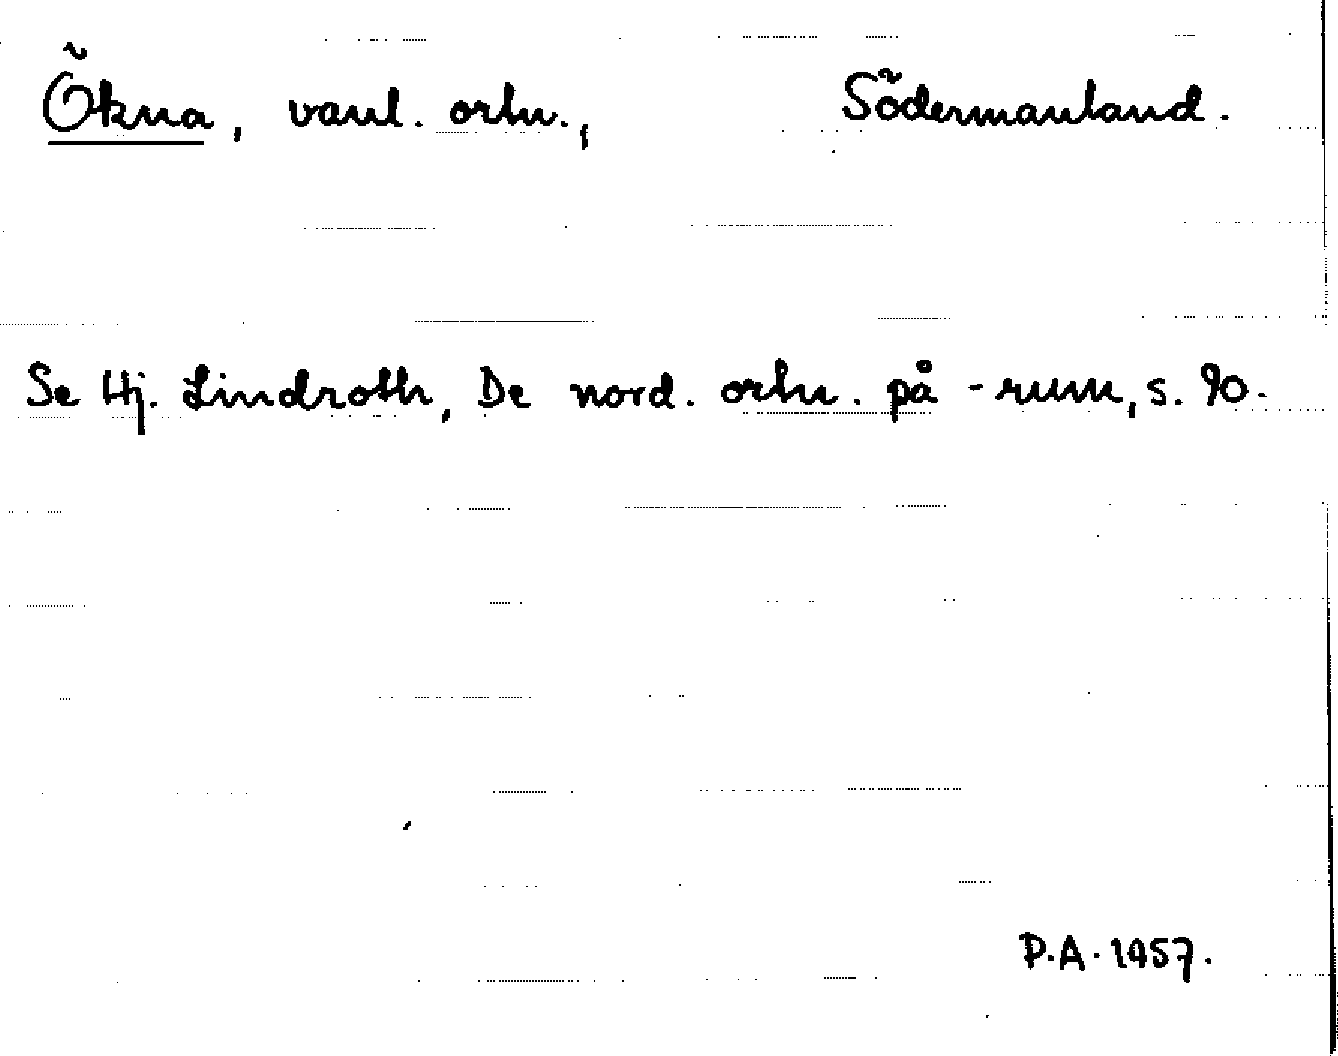 Ökna, vanl. ortn., Södermanland.
Se Hj. Lindroth, De nord. ortn. på -rum, s. 90.
P.A. 1957.